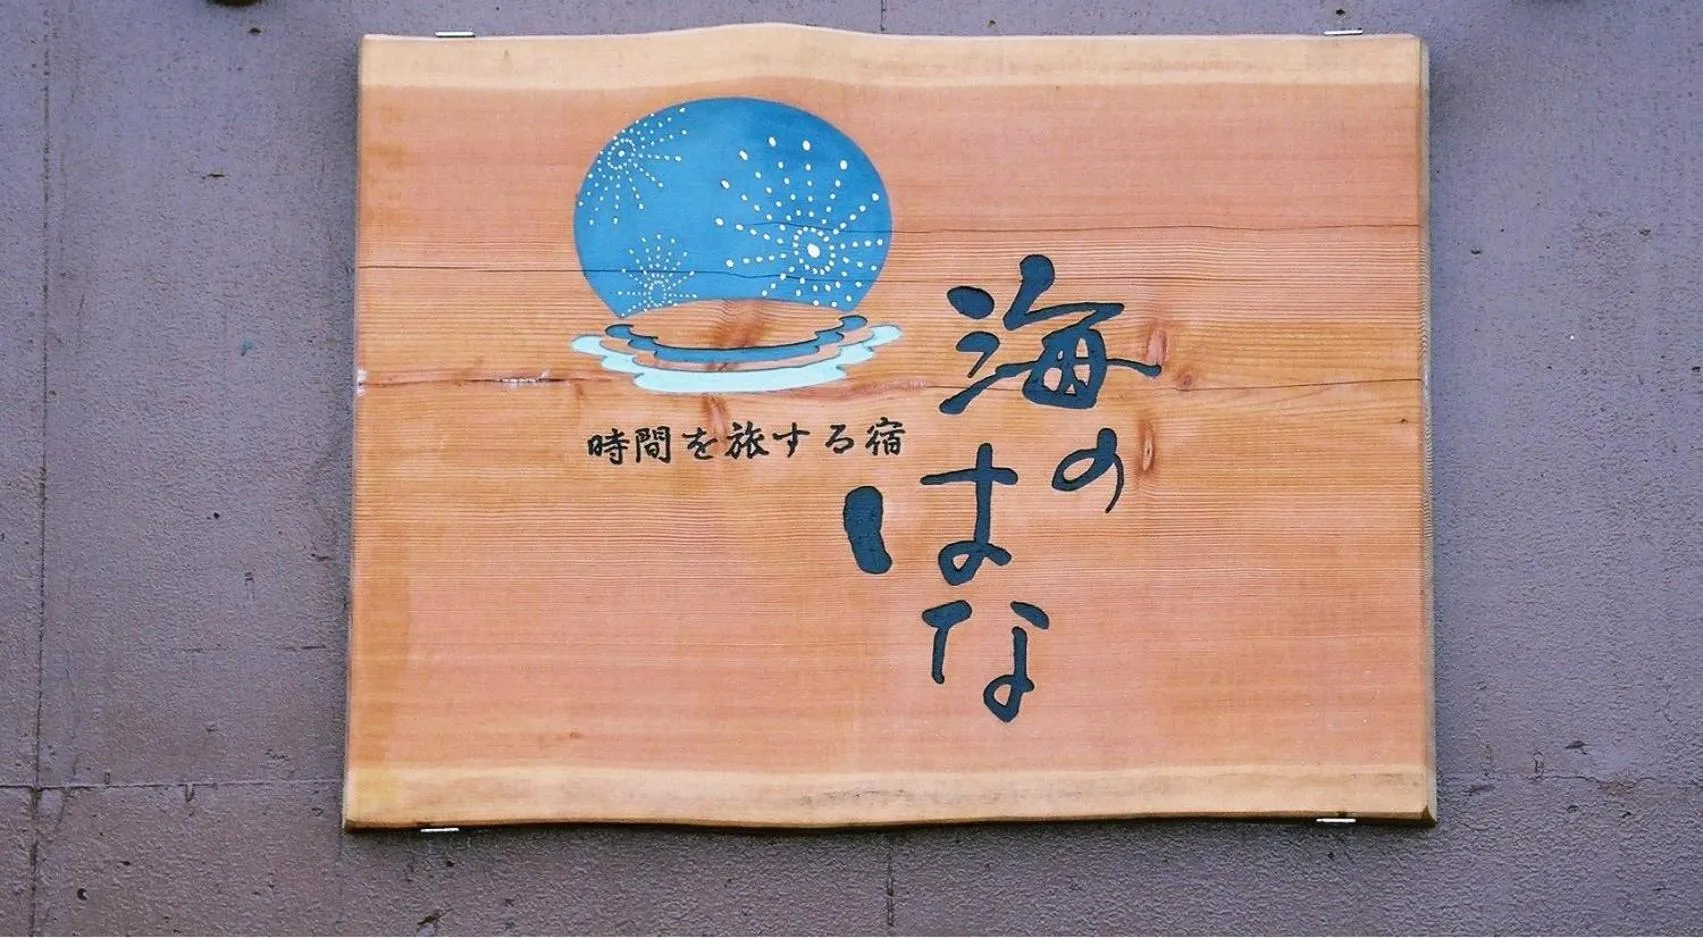 時間を旅する宿
海のはな